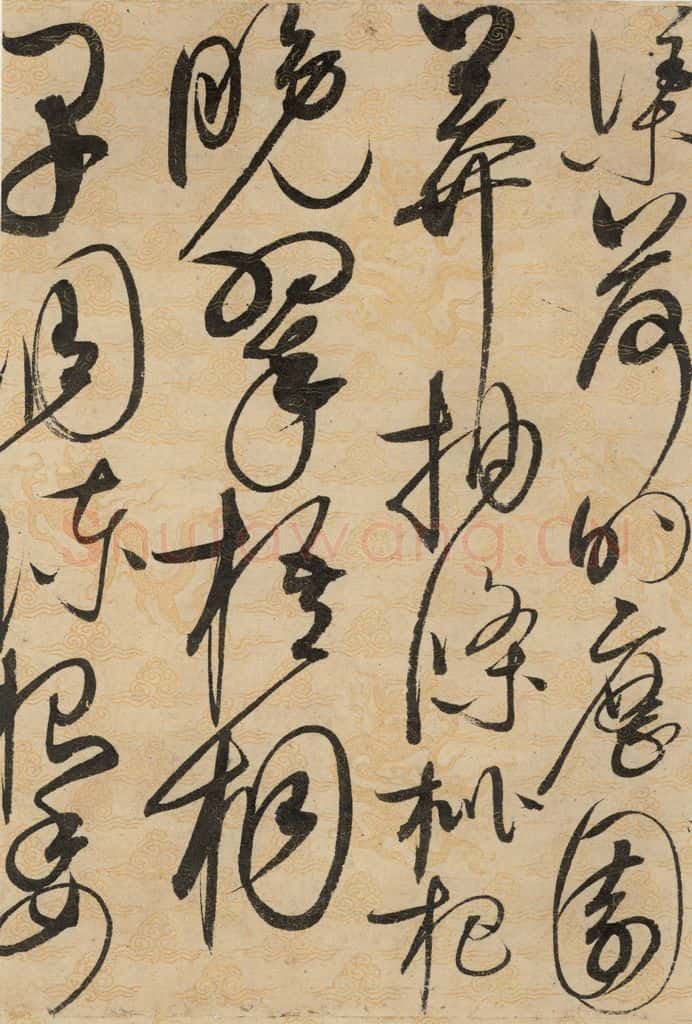 渠荷的歷園
莽抽條枇杷
晚翠梧桐
早凋陳根委
Shufawang.CN